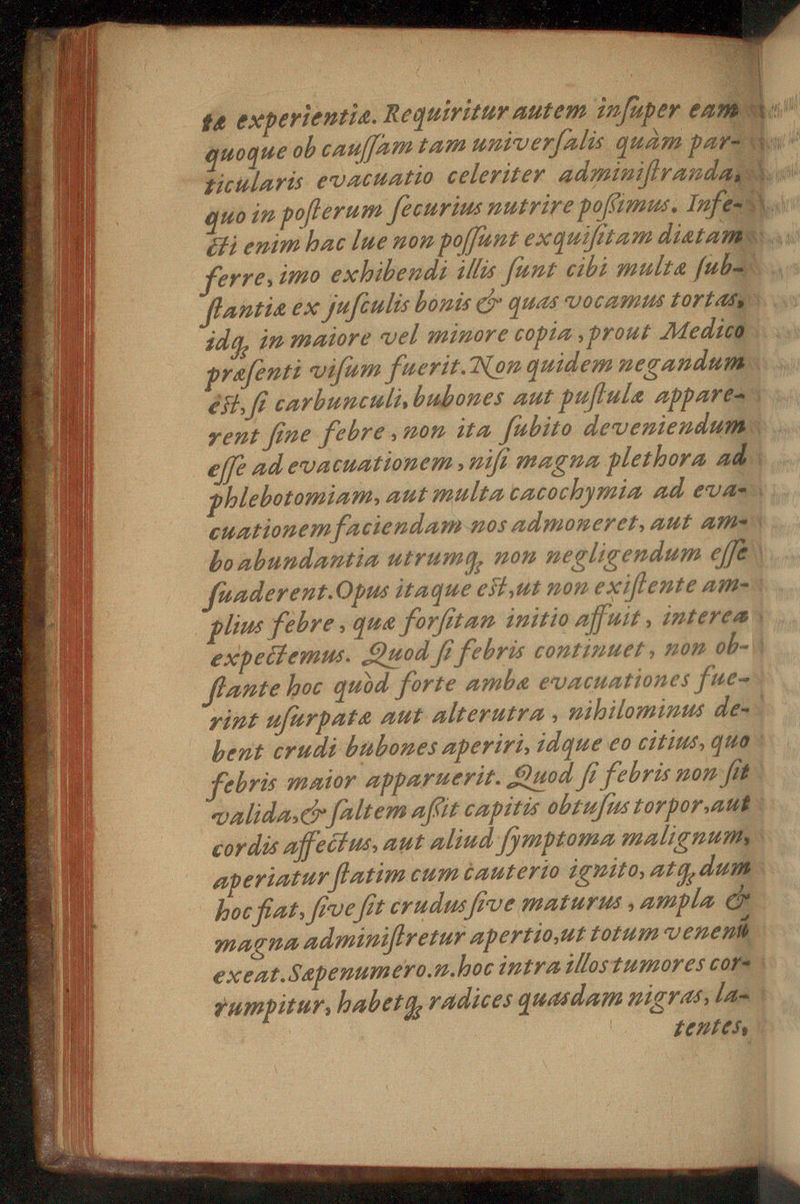 ta experientia. Requiritur autem inſuper eam
quoque ob cauſſam tam univerſalis quàm par-
ticularis evacuatio celeriter adminiſtranda,
quo in poſterum ſecurius nutrire poſsimus. Infe-
cti enim hac lue non poſſunt exquiſitam diætam
ferre, imo exhibendi illis ſunt cibi multæ ſub-
ſtantiæ ex juſculis bonis & quas vocamus tortas,
idq, in maiore vel minore copia, prout Medico
præſenti viſum fuerit. Non quidem negandum
eſt, ſi carbunculi, bubones aut puſtulæ appare-
rent ſine febre, non ita ſubito deveniendum
eſſe ad evacuationem, niſi magna plethora ad
phlebotomiam, aut multa cacochymia ad eva-
cuationem faciendam nos admoneret, aut am-
bo abundantia utrumq, non negligendum eſſe
ſuaderent. Opus itaque eſt, ut non exiſtente am-
plius febre, quæ forſitan initio affuit, interea
expectemus. Quod ſi febris continuet, non ob-
ſtante hoc quòd forte ambæ evacuationes fue-
rint uſurpatæ aut alterutra, nihilominus de-
bent crudi bubones aperiri, idque eo citius, quo
febris maior apparuerit. Quod ſi febris non ſit
valida, & ſaltem aſsit capitis obtuſus torpor, aut
cordis affectus, aut aliud ſymptoma malignum,
aperiatur ſtatim cum cauterio ignito, atq, dum
hoc fiat, ſive ſit crudus ſive maturus, ampla &
magna adminiſtretur apertio, ut totum venenū
exeat. Sæpenumero.n. hoc intra illos tumores cor-
rumpitur, habetq, radices quasdam nigras, la-
tentes,